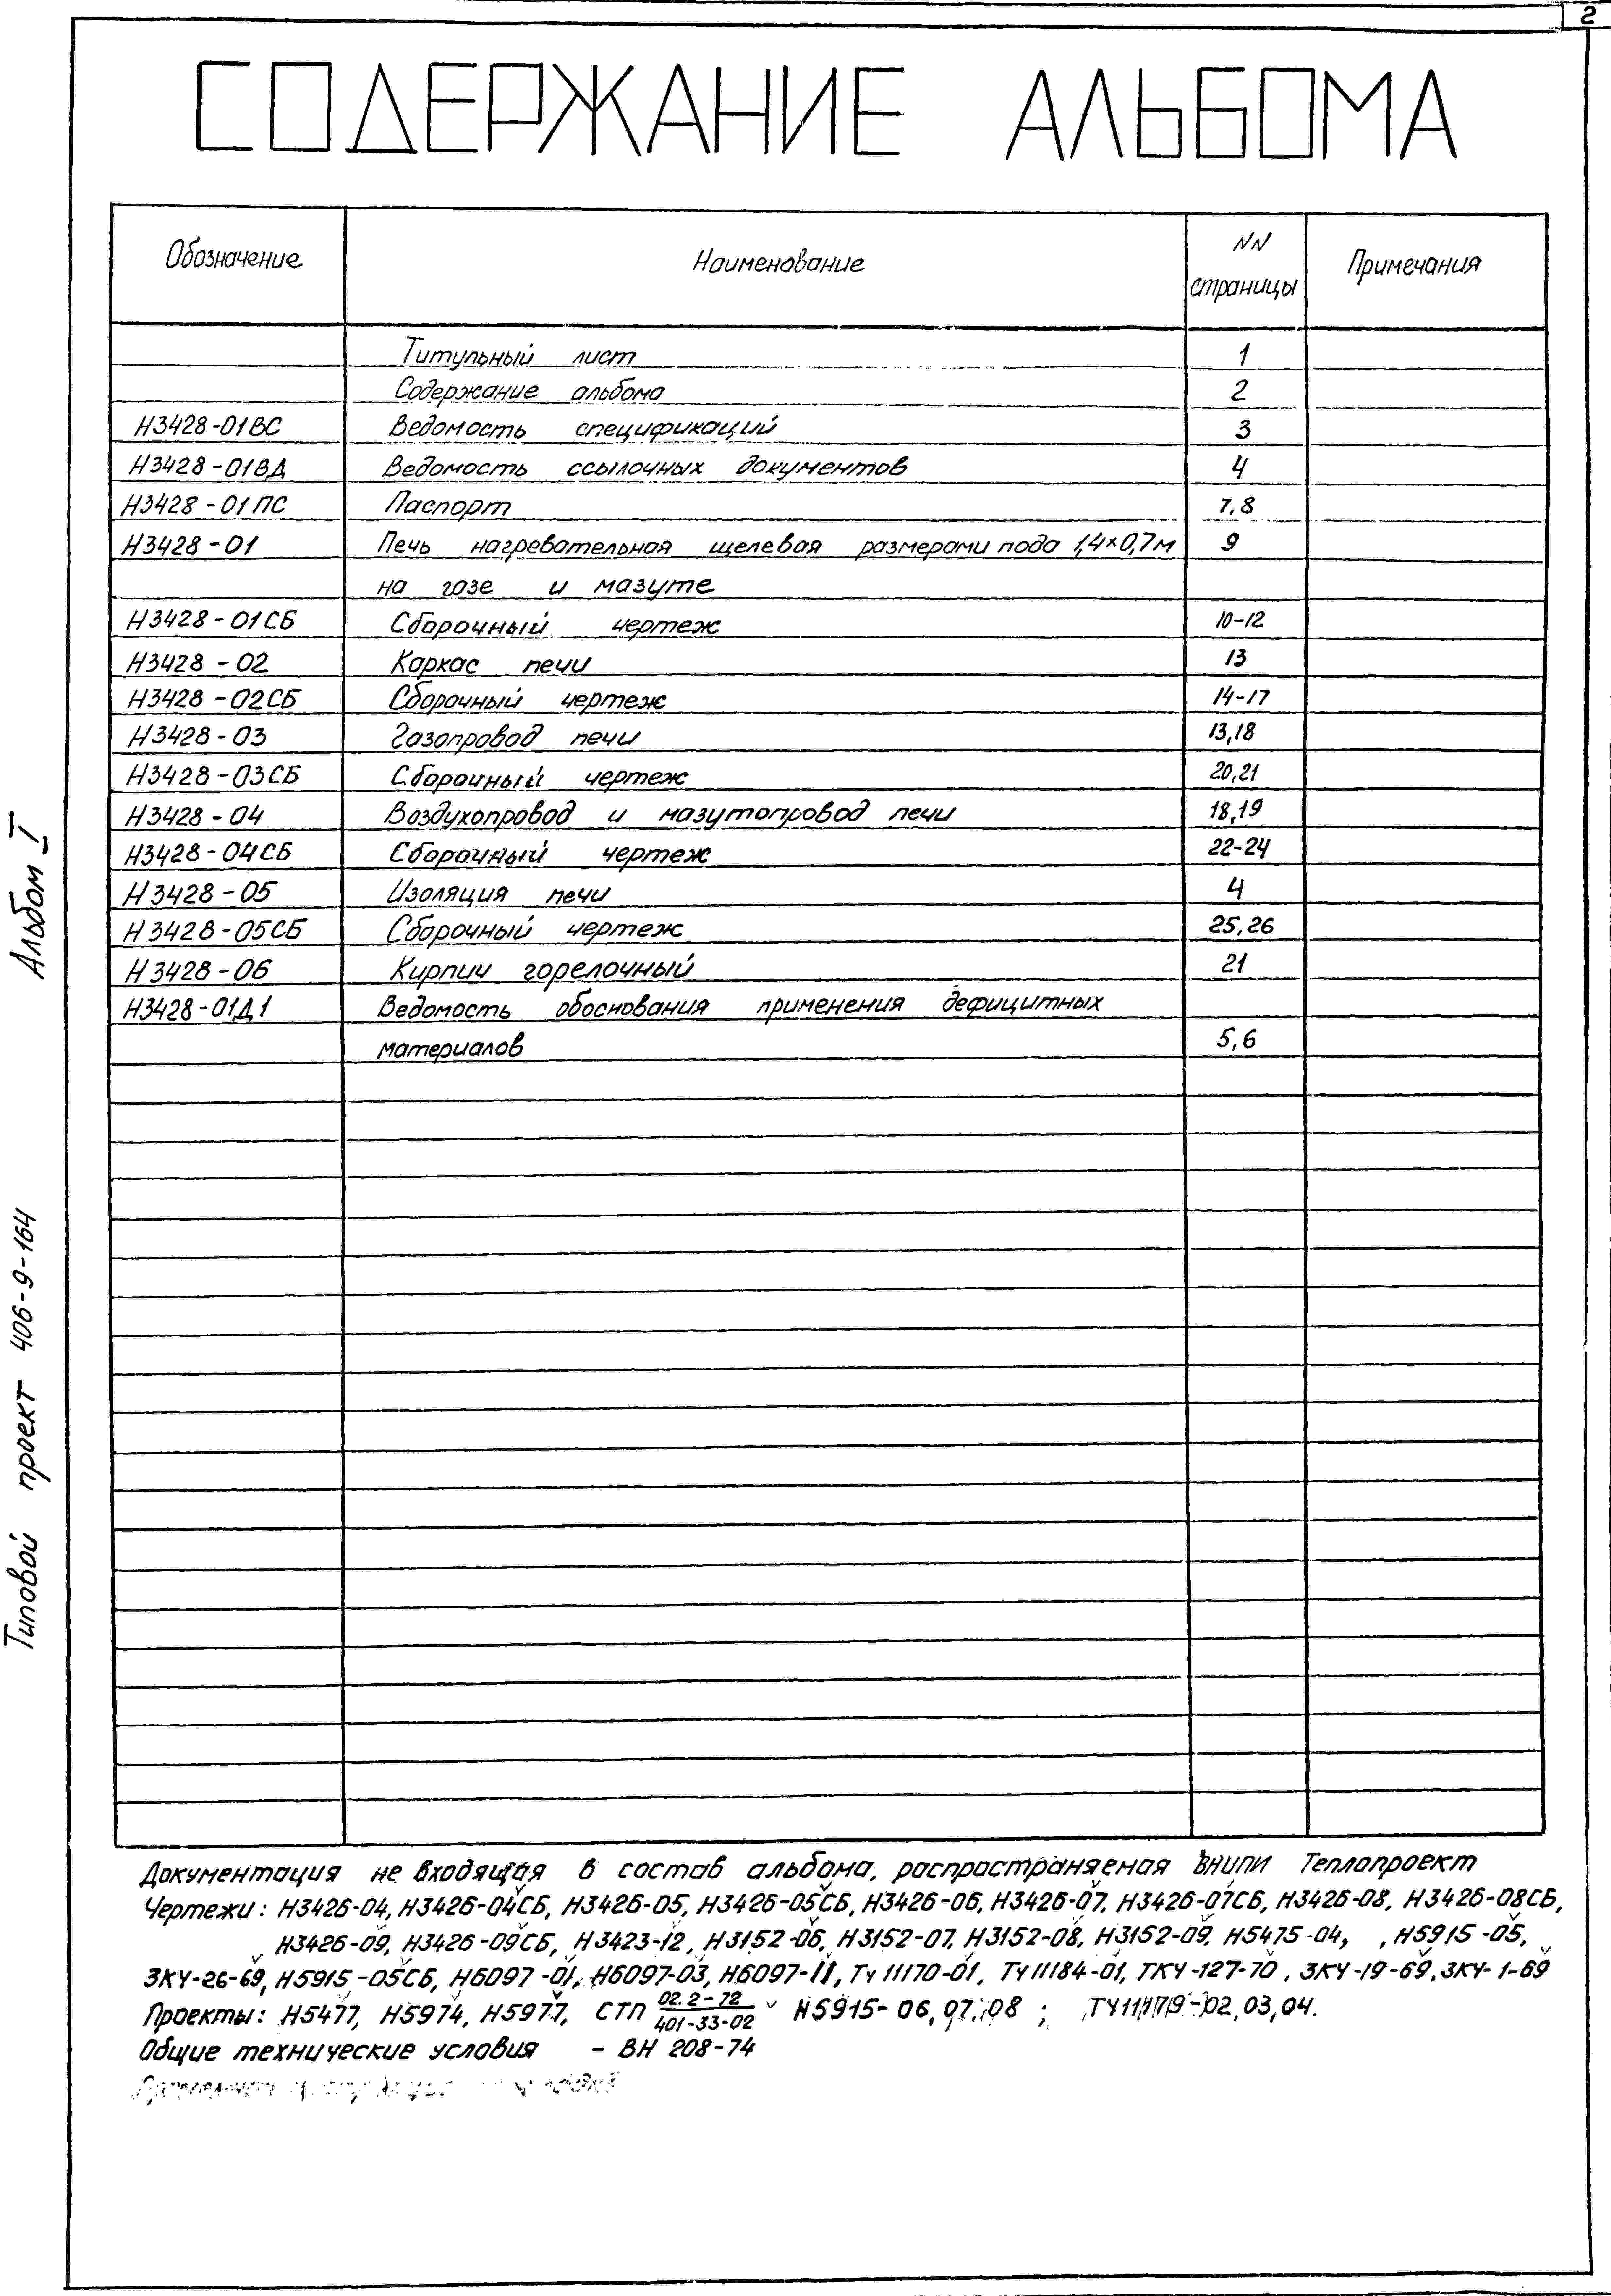 2
СОДЕРЖАНИЕ АЛЬБОМА
Обозначение Наименование NN страницы Примечания
Титульный лист 1
Содержание альбома 2
Н3428-01ВС Ведомость спецификаций 3
Н3428-01ВД Ведомость ссылочных документов 4
Н3428-01ПС Паспорт 7,8
Н3428-01 Печь нагревательная щелевая размерами пода 1,4×0,7м 9
на газе и мазуте
Н3428-01СБ Сборочный чертеж 10-12
Н3428-02 Каркас печи 13
Н3428-02СБ Сборочный чертеж 14-17
Н3428-03 Газопровод печи 13,18
Н3428-03СБ Сборочный чертеж 20,21
Н3428-04 Воздухопровод и мазутопровод печи 18,19
Н3428-04СБ Сборочный чертеж 22-24
Н3428-05 Изоляция печи 4
Н3428-05СБ Сборочный чертеж 25,26
Н3428-06 Кирпич горелочный 21
Н3428-01Д1 Ведомость обоснования применения дефицитных
материалов 5,6
Документация не входящая в состав альбома, распространяемая ВНИПИ Теплопроект
Чертежи: Н3426-04, Н3426-04СБ, Н3426-05, Н3426-05СБ, Н3426-06, Н3426-07, Н3426-07СБ, Н3426-08, Н3426-08СБ,
Н3426-09, Н3426-09СБ, Н3423-12, Н3152-06, Н3152-07, Н3152-08, Н3152-09, Н5475-04, , Н5915-05,
ЗКЧ-26-69, Н5915-05СБ, Н6097-01, Н6097-03, Н6097-11, ТЧ11170-01, ТЧ11184-01, ТКЧ-127-70, ЗКЧ-19-69, ЗКЧ-1-69
Проекты: Н5477, Н5974, Н5977, СТП 02.2-72/401-33-02 Н5915-06,07,08; ТЧ11179-02,03,04.
Общие технические условия - ВН 208-74
Альбом I
Типовой проект 406-9-164